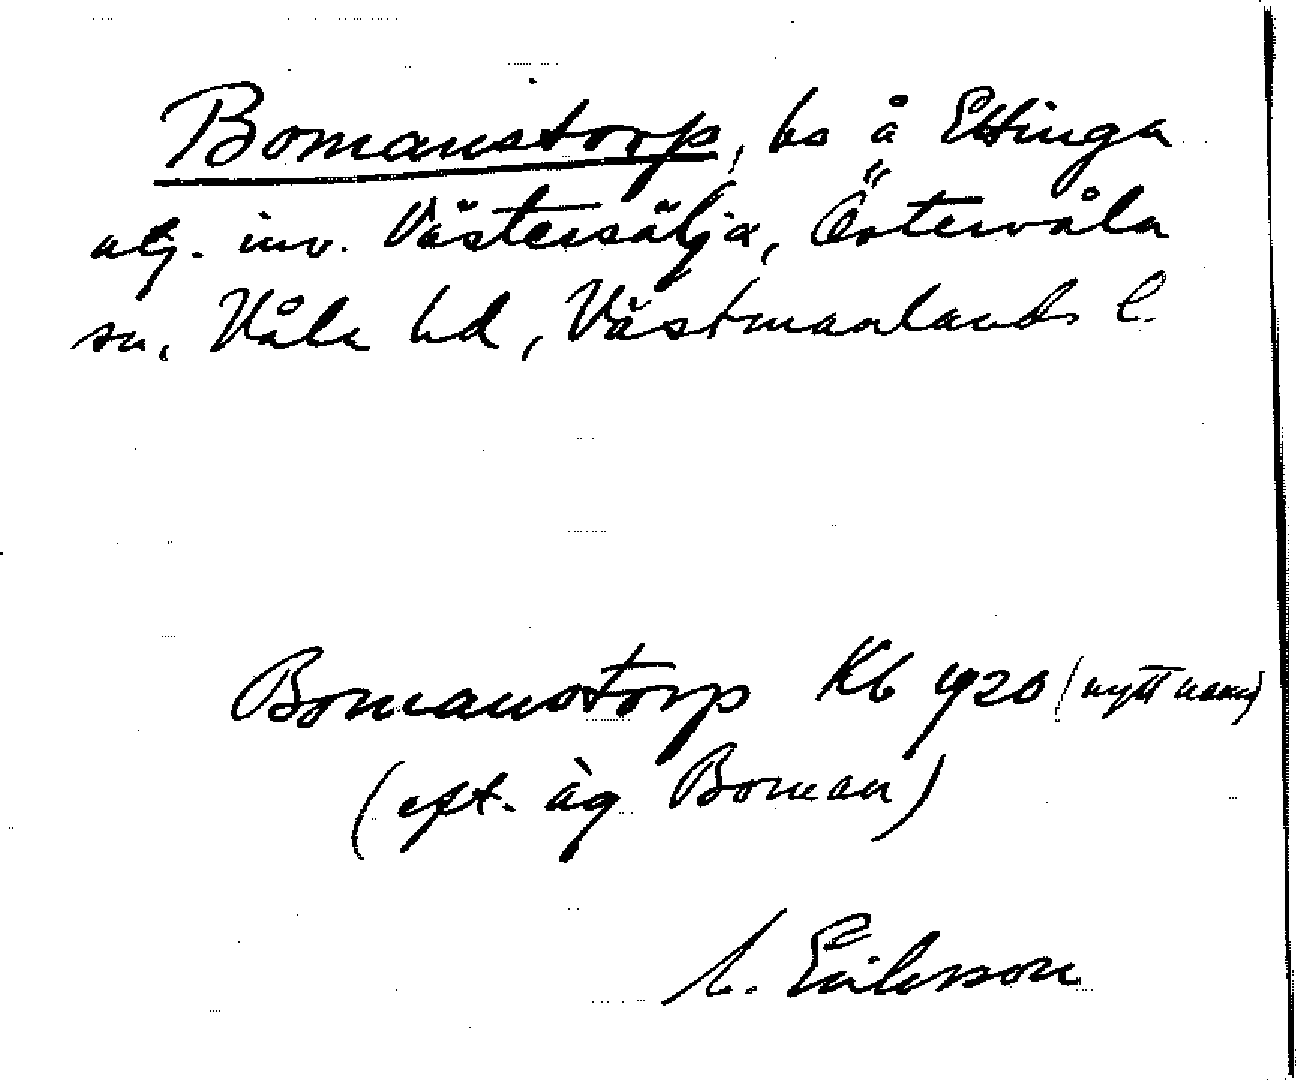 Bomanstorp, bs å Ettinga
ägj. inv. Västersälja, Östervåla
sn, Våla hd, Västmanlands l.
Bomanstorp Kb 1920 (nytt namn)
(eft. äg Boman)
Eriksson